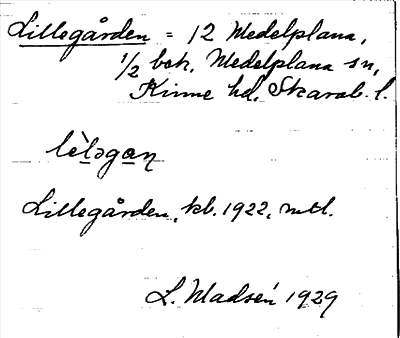 Lillegården = 12 Medelplana,
1/2 bok, Medelplana sn,
Kinne hd, Skarab. l.
lèləgan
Lillegården, kb. 1922, mtl.
L. Madsén 1929